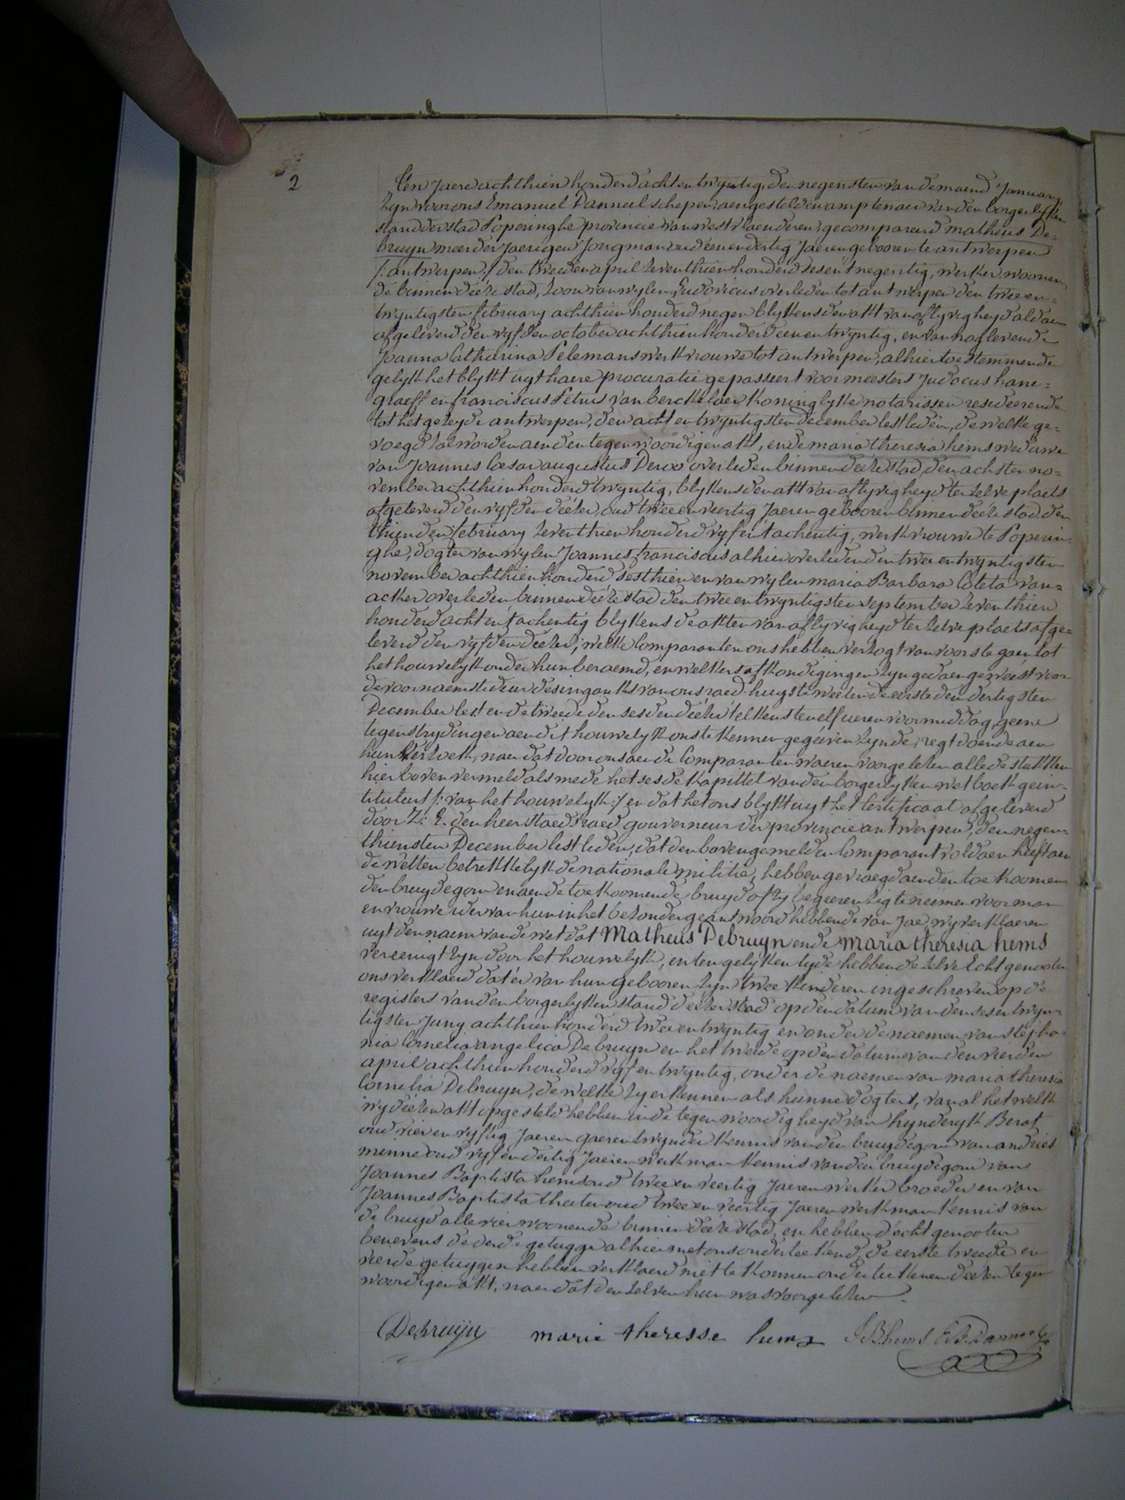 2
Den Jaere achthien honderd achtentwyntig, den negensten van de maend January
Zyn voor ons Emanuel Danneel schepen aengestelden amptenaer van den borgerlyken
stand der stad Poperinghe provincie van westvlaenderen, gecompareerd matheus De-
bruyn meerderjaerigen Jongman oud eenendertig Jaeren geboren te antwerpen
/: antwerpen :/ den tweeden april zeventhien honderd sesentnegentig, werker woonen-
de binnen deéze stad, Zoon van wylen Ludovicus overleden tot antwerpen den twee en-
twyntigsten february achthien honderd negen blykens den akt van aflyvigheyd aldaer
afgeleverd den vyfden october achthien honderd eenentwyntig, en van naflevende
Joanna Catharina Selemans werkvrouwe tot antwerpen, alhier toestemmende
gelyk het blykt uyt haere procuratie gepasseert voor meesters Judocus hane-
graeff en franciscus Petrus van berckelder Koninglyke notarissen resideerende
tot het gezeyde antwerpen, den achtentwyntigsten december lestleden, de welke ge-
voegd zal worden aen den tegenwoordigen akt, ende maria theresia hems weduwe
van Joannes Cesar augustus Deroo overleden binnen deéze stad, den achsten no-
vember achthien honderd twyntig, blykens den akt van aflyvigheyd ter zelve plaets
afgeleverd den vyfden deézer, oud tweeenveertig Jaeren geboren binnen deéze stad, den
thienden february zeventhien honderd vyfentachentig, werkvrouwe te Poperin-
ghe, dogter van wylen Joannes franciscus alhier overleden den tweeentwyntigsten
november achthien honderd sesthien en van wylen maria Barbara Coleta van-
acker overleden binnen deéze stad den tweeentwyntigsten september zeventhien
honderd achtentachentig blykens de akten van aflyvigheyd ter zelve plaets afge-
leverd den vyfden deézer, welke Comparanten ons hebben verzogt van voor te gaen tot
het houwelyk onder hun beraemd, en welkers afkondigingen zyn gedaen geweest voor
de voornaemste deur des ingangks van ons raed huys te weeten de eerste den dertigsten
December lest en de tweede den sesden deézer telkens ten elf ueren voormiddag, geene
tegenstrydingen aen dit houwelyk ons te kennen gegeéven zynde, regt doende aen
hun verzoek, naer dat door ons aen de Comparanten waeren voorgelezen alle de stukken
hier boven vermeld alsmede het sesde kapittel van den borgerlyken wetboek gein-
tituleert /: van het houwelyk :/ en dat het ons blykt uyt het Certificaet afgeleverd
door Z: E: den heer staedsraed, gouverneur der provincie antwerpen, den negen-
thiensten December lestleden, dat den bovengemelden Comparant voldaen heeft aen
de wetten betrekkelyk de nationale militie, hebben gevraegd aen den toekoomen-
den bruydegom en aen de toekoomende bruyd of zy begeeren zig te neemen voor man
en vrouwe ider van hun in het bezonder geantwoord hebbende van Jae, wy verklaeren
uyt den naem van de wet dat Matheus Debruyn ende Maria theresia hems
vereenigt zyn door het houwelyk, en ten gelyken tyde hebben de zelve Echtgenooten
ons verklaerd dat er van hun gebooren zyn twee kinderen ingeschreven op de
registers van den borgerlyken stand deézer stad op den datum van den sesentwyn-
tigsten Juny achthien honderd tweeentwyntig en onder de naemen van Stepha-
nia Cornelia angelica Debruyn en het tweede op den datum van den vierden
april achthien honderd vyfentwyntig, onder de naemen van maria theresia
Cornelia Debruyn, de welke zy erkennen als hunne dogters, van al het welk
wy deézen akt opgesteld hebben in de tegenwoordigheyd van hynderyk Berat
oud vierenvyftig Jaeren gaerentwynder kennis van den bruydegom van andries
menne oud vyfendertig Jaeren werkman kennis van den bruydegom van
Joannes Baptista hems oud tweeenveertig Jaeren werker broeder en van
Joannes Baptista theeten oud tweeenveertig Jaeren werkman kennis van
de bruyd alle vier woonende binnen deéze stad, en hebben d'echtgenooten
benevens de derde getuyge alhier met ons onderteekend, de eerste tweede en
vierde getuygen hebben verklaerd niet te konnen onderteekenen deézen tegen-
woordigen akt, naer dat den zelven hun was voorgelezen.
Debruijn marie theresse hems J B hems E. Danneel